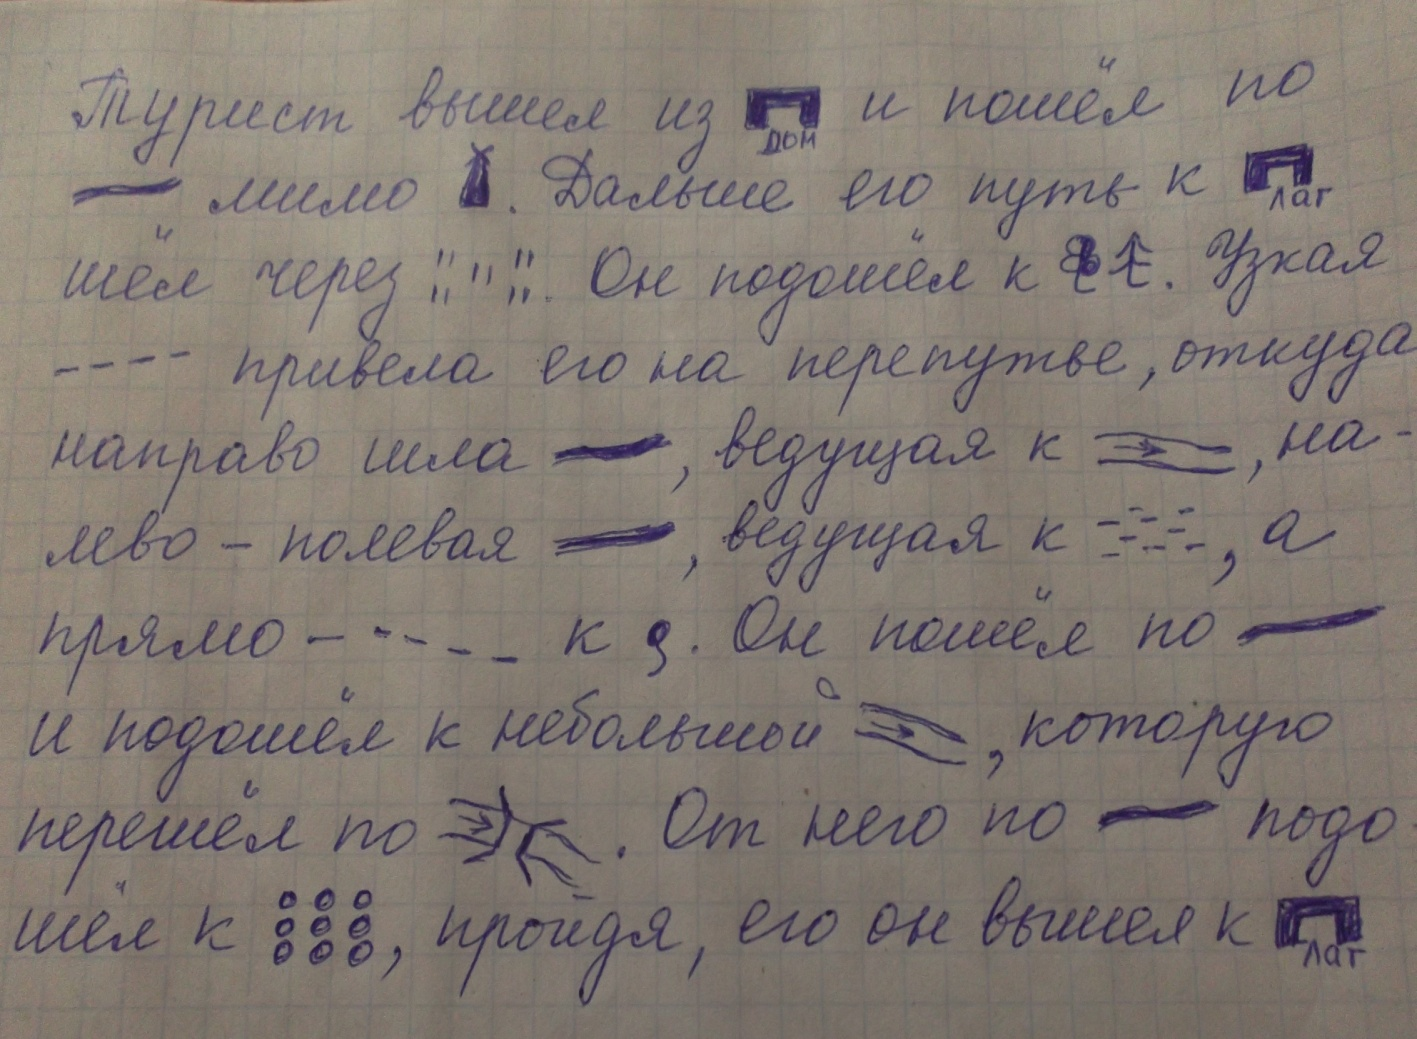 Турист вышел из дом и пошёл по
мимо . Дальше его путь к лаг
шёл через . Он подошёл к . Узкая
привела его на перепутье, откуда
направо шла , ведущая к , на-
лево - полевая , ведущая к , а
прямо - к . Он пошёл по
и подошёл к небольшой , которую
перешёл по . От него по подо-
шёл к , пройдя, его он вышел к лаг